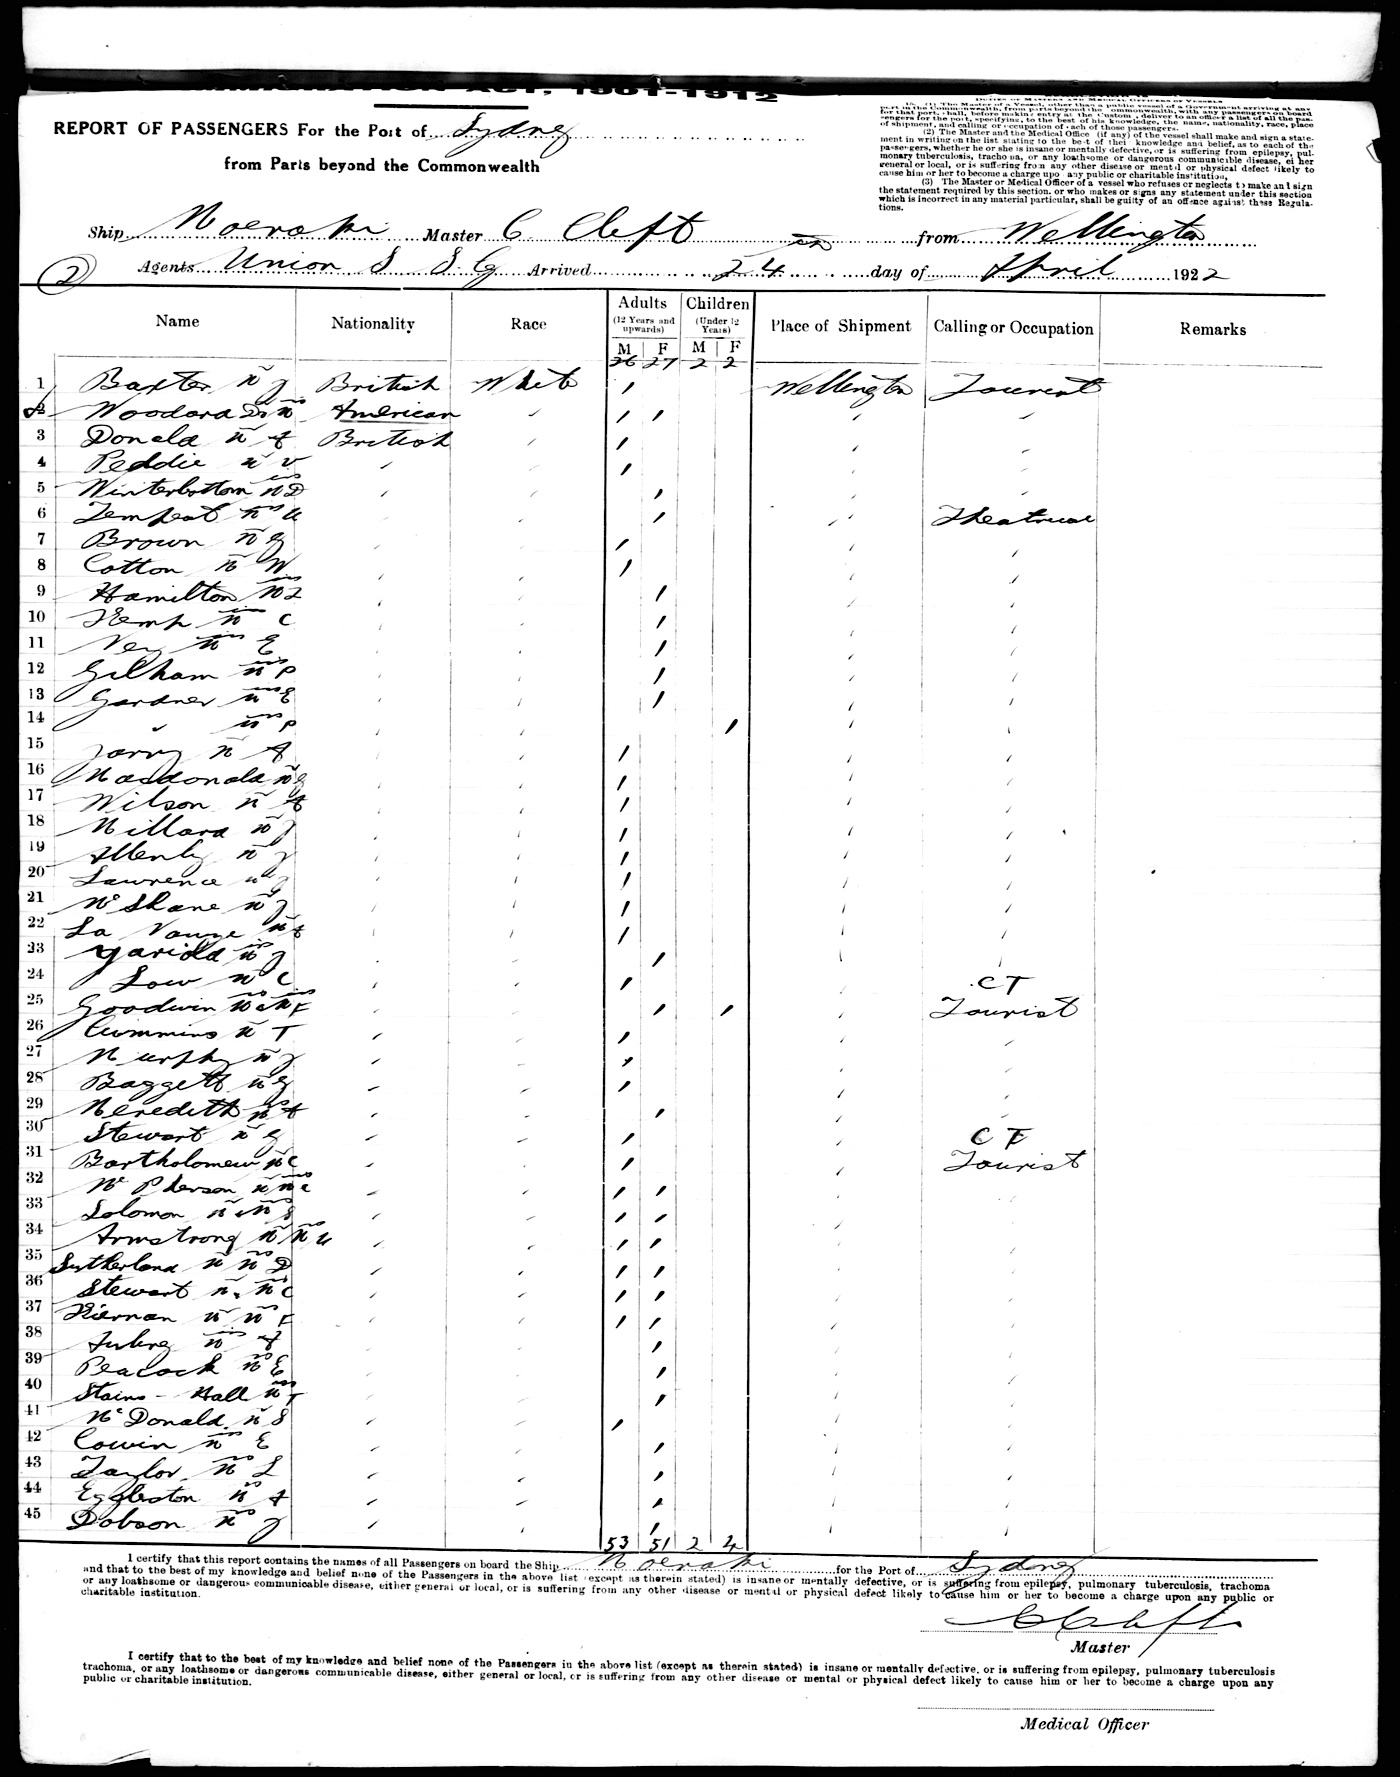 IMMIGRATION ACT, 1901-1912
REPORT OF PASSENGERS For the Port of Sydney
from Parts beyond the Commonwealth
(2) The Master and the Medical Office (if any) of the vessel shall make and sign a state-
ment in writing on the list stating to the best of their knowledge and belief, as to each of the
passengers, whether he or she is insane or mentally defective, or is suffering from epilepsy, pul-
monary tuberculosis, trachoma, or any loathsome or dangerous communicable disease, either
general or local, or is suffering from any other disease or mental or physical defect likely to
cause him or her to become a charge upon any public or charitable institution,
(3) The Master or Medical Officer of a vessel who refuses or neglects to make and sign
the statement required by this section, or who makes or signs any statement under this section
which is incorrect in any material particular, shall be guilty of an offence against these Regula-
tions.
Ship Moeraki Master C. Cleft from Wellington
2 Agents Union S S Co Arrived 24 day of April 1922
Name Nationality Race Adults (12 Years and upwards) Children (Under 12 Years) Place of Shipment Calling or Occupation Remarks
M F M F
26 27 2 2
1 Baxter Mr J British White Wellington Tourist
2 Woodard American
3 Donald Mr A British
4 Peddie Mr V
5 Winterbottom Miss D
6 Tempest Theatrical
7 Brown Mr G
8 Cotton Mr W
9 Hamilton Miss
10 Kemp Miss C
11 Vey Miss E
12 Gilham P
13 Gardner E
14 " P
15 Jarvy Mr A
16 Macdonald Mr G
17 Wilson Mr A
18 Millard Mr J
19 Allenby Mr J
20 Lawrence Mr J
21 McShane Mr J
22 La Mr A
23 J
24 Low Mr C C T
25 Goodwin F Tourist
26 Cummins Mr T
27 Murphy Mr J
28 Baggett Mr G
29 Meredith A
30 Stewart Mr G C T
31 Bartholomew Mr C Tourist
32 McPherson Mr
33 Solomon Mr
34 Armstrong Mr
35 Sutherland Mr Mrs D
36 Stewart Mr Mrs C
37 Kiernan Mr Mrs F
38 Miss A
39 Peacock E
40 Stains - Hall T
41 McDonald Mr S
42 Cowin Miss E
43 Taylor Mrs L
44 Eggleston A
45 Dobson Mrs J
53 51 2 4
I certify that this report contains the names of all Passengers on board the Ship Moeraki for the Port of Sydney
and that to the best of my knowledge and belief none of the Passengers in the above list (except as therein stated) is insane or mentally defective, or is suffering from epilepsy, pulmonary tuberculosis, trachoma
or any loathsome or dangerous communicable disease, either general or local, or is suffering from any other disease or mental or physical defect likely to cause him or her to become a charge upon any public or
charitable institution.
Master
I certify that to the best of my knowledge and belief none of the Passengers in the above list (except as therein stated) is insane or mentally defective, or is suffering from epilepsy, pulmonary tuberculosis
trachoma, or any loathsome or dangerous communicable disease, either general or local, or is suffering from any other disease or mental or physical defect likely to cause him or her to become a charge upon any
public or charitable institution.
Medical Officer